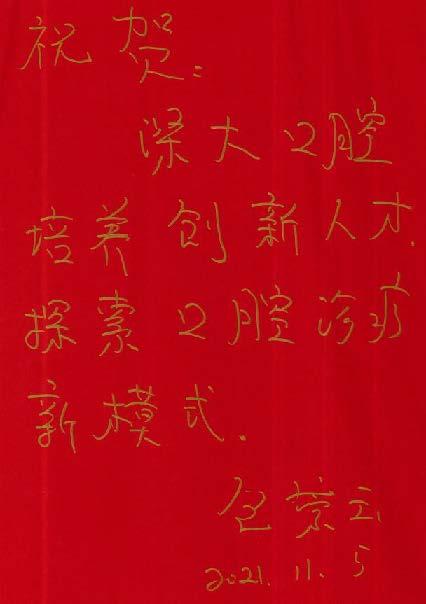 祝贺：
深大口腔
培养创新人才，
探索口腔诊疗
新模式．
包崇云
2021.11.5